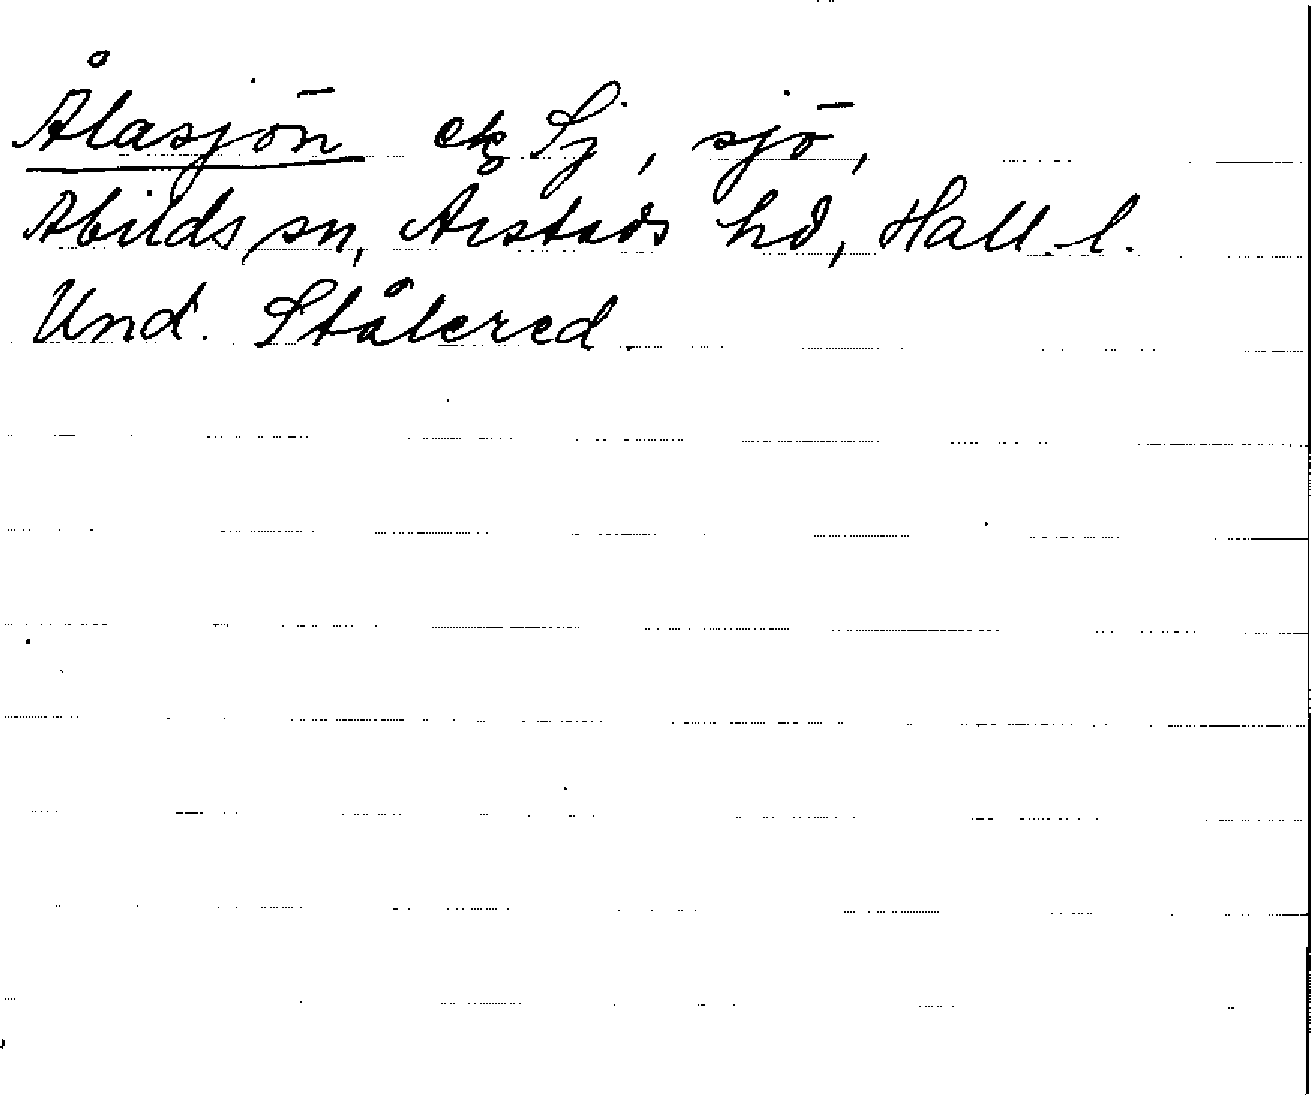 Ålasjön ek Sj, sjö,
Abilds sn, Årstads hd, Hall. l.
Und. Stålered.